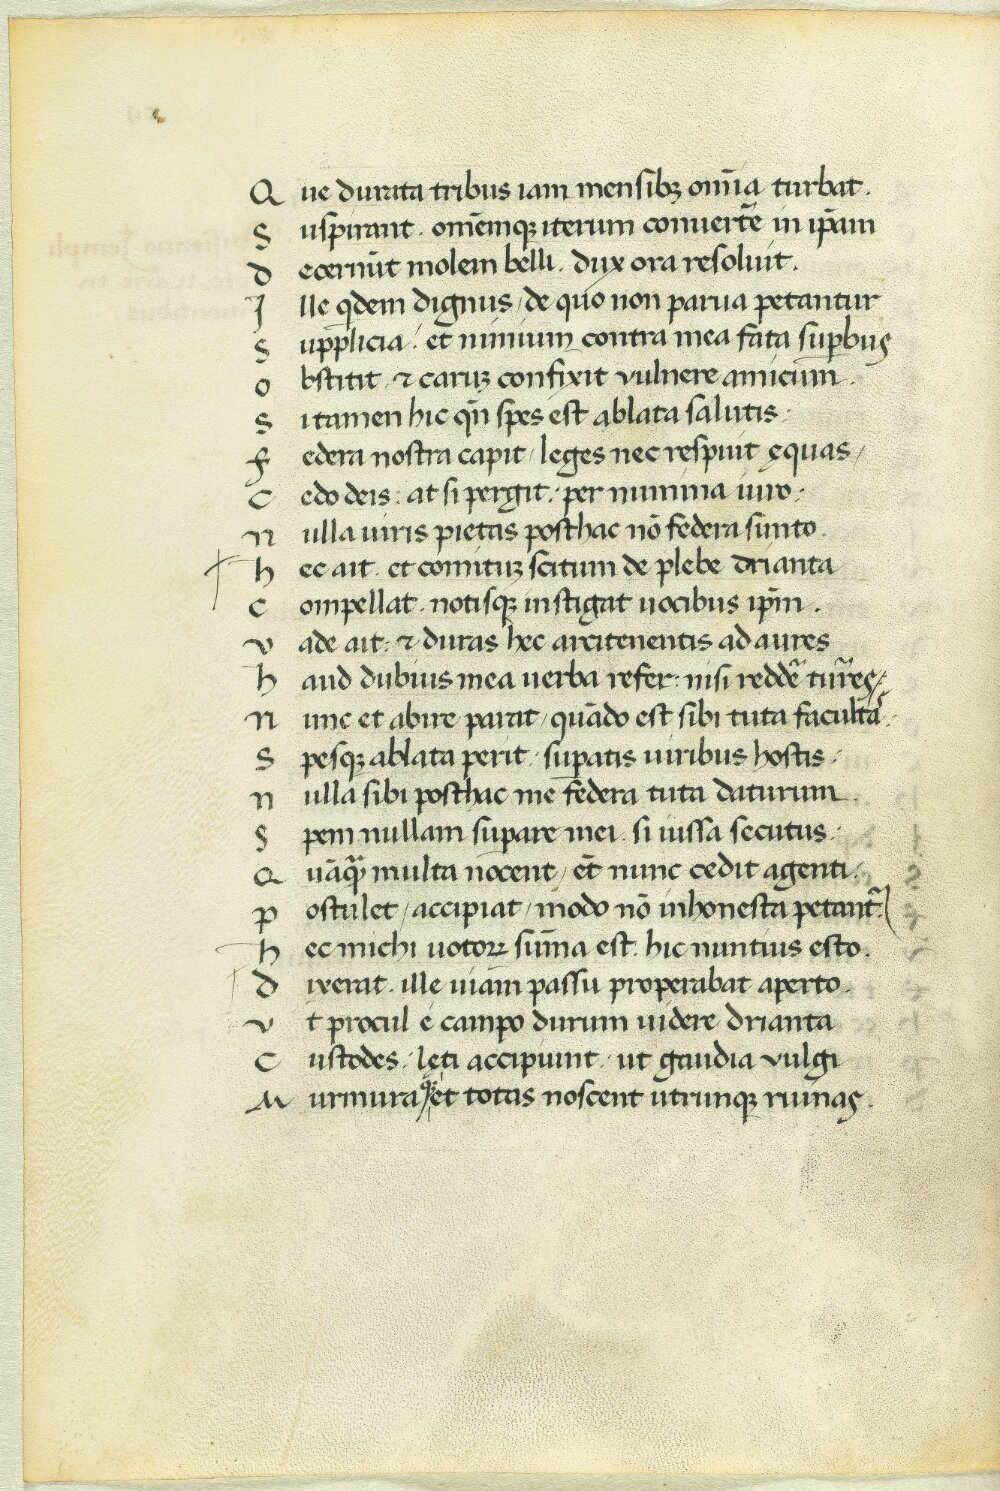 Que durata tribus iam mensibꝫ om̄ia turbat.
Suspirant. om̄emqꝫ iterum conuert̄e in ip̄am
decernūt molem belli. dux ora resoluit.
Ille qdem dignus / de quo non parua petantur
Supplicia: et nimium contra mea fata supbus
obstitit ⁊ caruꝫ confixit vulnere amicum.
Si tamen hic qn̄ spes est ablata salutis.
federa nostra capit / leges nec respuit ęquas /
Cedo deis: at si pergit. per numina iuro.
nulla uiris pietas posthac nō federa sunto.
hec ait. et comituꝫ scitum de plebe drianta
Compellat. notisqꝫ instigat uocibus ip̄m.
vade ait: ⁊ duras hec arcitenentis ad aures
haud dubius mea uerba refer: nisi redd̄e turres /
nunc et abire parat / quādo est sibi tuta facultas.
Spesqꝫ ablata perit. supatis uiribus hostis.
nulla sibi posthac me federa tuta daturum.
Spem nullam supare mei. si iussa secutus.
Quāqꝫ multa nocent / et̄ nunc cedit agenti.
postulet / accipiat / modo nō inhonesta petant̄.
hec michi uotoꝝ sum̄a est. hic nuntius esto.
dixerat. ille uiam passu properabat aperto
vt procul e campo durum uidere drianta
Custodes. lęti accipiunt. ut gaudia vulgi
Murmuraqꝫ et totas noscent utrunqꝫ ruinas.